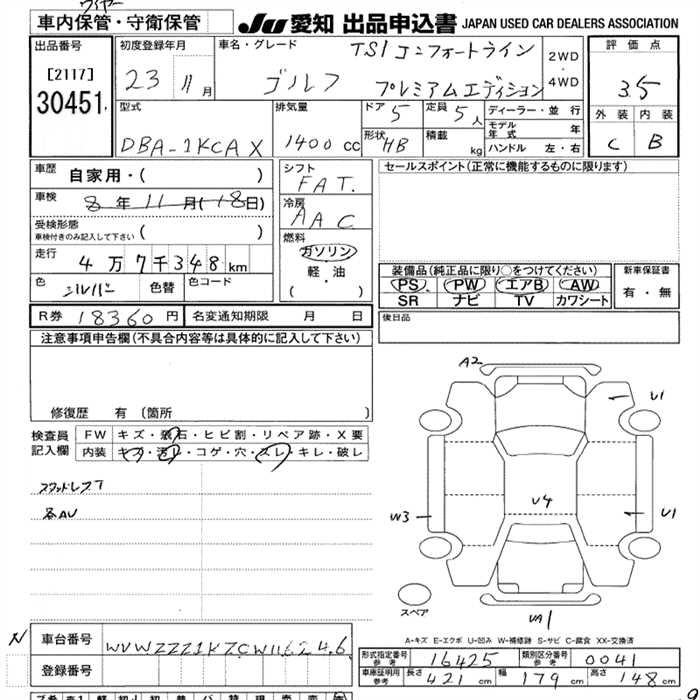 ワイヤー
車内保管・守衛保管
JU 愛知 出品申込書 JAPAN USED CAR DEALERS ASSOCIATION
出品番号
[2117]
30451
初度登録年月
23 11月
車名・グレード
ゴルフ
TSIコンフォートライン
プレミアムエディション
2WD
・
4WD
評価点
3.5
外装 内装
C B
型式
DBA-1KCAX
排気量
1400 cc
ドア 5
定員 5人
形状 HB
積載 kg
ディーラー・並行
モデル年式 年
ハンドル 左・右
車歴 自家用・( )
車検 8年11月(18日)
受検形態
車検付きのみ記入して下さい ( )
走行 4万7千348km
色 シルバー 色替 色コード
シフト
FAT.
冷房
AAC
燃料
ガソリン
軽・油
( )
セールスポイント(正常に機能するものに限ります)
装備品(純正品に限り○をつけてください)
PS PW エアB AW
SR ナビ TV カワシート
新車保証書
有・無
R券 18360円 名変通知期限 月 日
後日品
注意事項申告欄(不具合内容等は具体的に記入して下さい)
修復歴 有 〔箇所 〕
検査員記入欄
FW キズ・飛石・ヒビ割・リペア跡・X要
内装 キズ・汚レ・コゲ・穴・スレ・キレ・破レ
スタッドレス
各AU
A2
U1
W3
U4
U1
UA1
スペア
A-キズ E-エクボ U-凹み W-補修跡 S-サビ C-腐食 XX-交換済
N
車台番号 WVWZZZ1KZCW116246
登録番号
形式指定番号 参考 16425 類別区分番号 参考 0041
車庫証明用 参考 長さ 421cm 幅 179cm 高さ 148cm